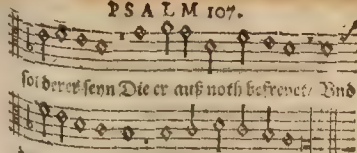 PSALM 107.
ſol derer ſeyn Die er auß noth befreyet/ Vnd